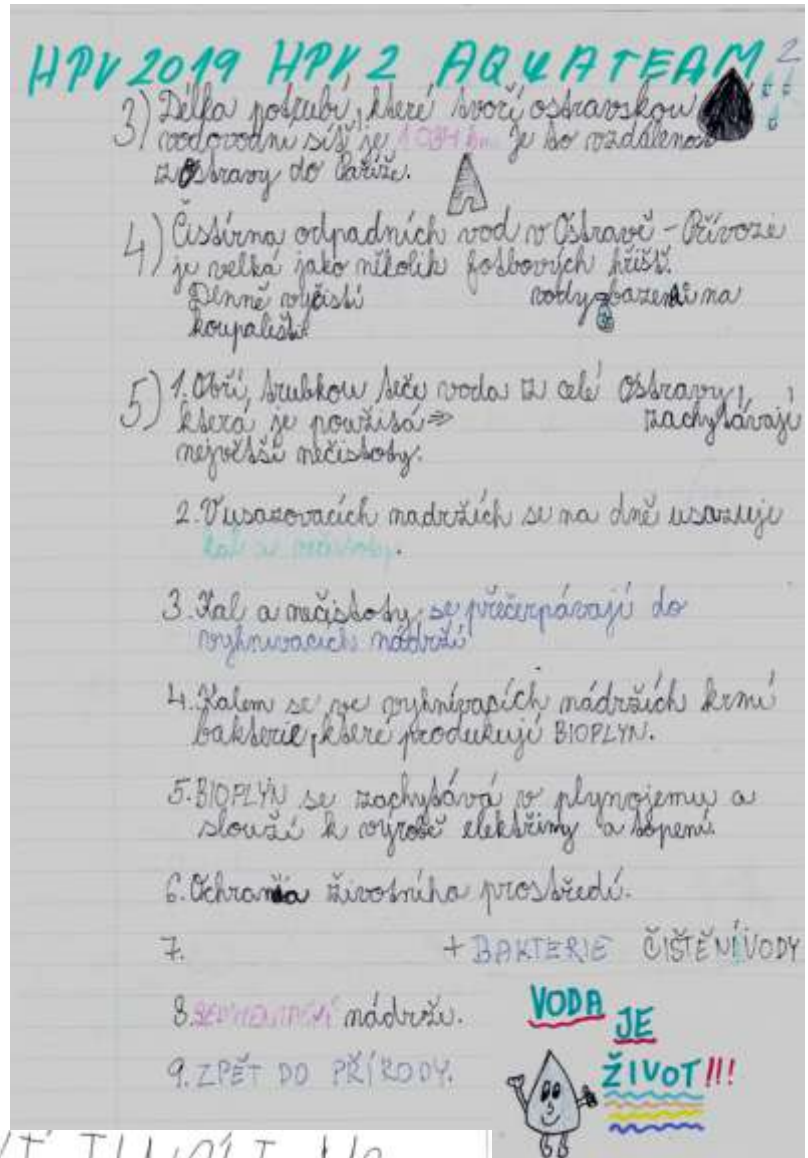 HPV 2019 HPV 2 AQUATEAM 2
3) Délka potrubí, které tvoří ostravskou
vodovodní síť je 1 084 km. Je to vzdálenost
z Ostravy do Paříže.
4) Čistírna odpadních vod v Ostravě - Přívoze
je velká jako několik fotbových hřišť.
Denně vyčistí vody bazeni na
koupališti
5) 1. Obří trubkou teče voda z celé Ostravy,
která je použitá => zachytávají
největší nečistoty.
2. V usazovacích nadržích se na dně usazuje
kal a nečistoty.
3. Kal a nečistoty se přečerpávají do
vyhnivacích nádrží
4. Kalem se ve vyhnívacích nádržích krmí
bakterie, které produkují BIOPLYN.
5. BIOPLYN se zachytává v plynojemu a
slouží k výrobě elektřiny a topení.
6. Ochrana životního prostředí.
7. + BAKTERIE ČIŠTĚNÍ VODY
8. SEDIMENTAČNÍ nádrže.
9. ZPĚT DO PŘÍRODY.
VODA
JE
ŽIVOT!!!